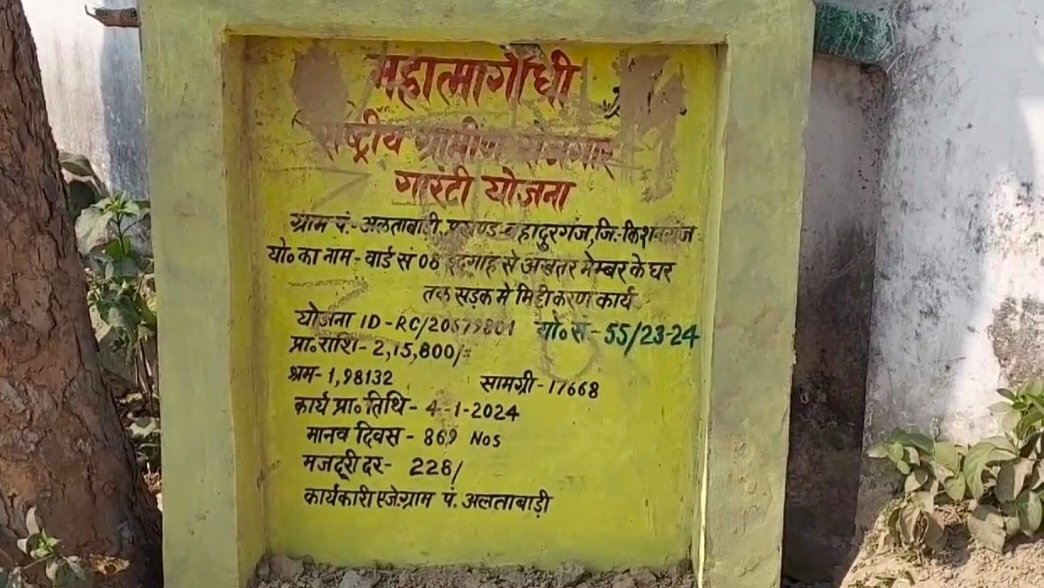 महात्मा गाँधी
राष्ट्रीय ग्रामीण रोजगार
गारंटी योजना
ग्राम पं.- अलताबाड़ी, प्रखण्ड-बहादुरगंज, जि.-किशनगंज
यो० का नाम - वार्ड सं 08 ईदगाह से अख्तर मेम्बर के घर
तक सड़क मे मिट्टीकरण कार्य
योजना ID - RC/20577801 यो० सं - 55/23-24
प्रा० राशि - 2,15,800/-
श्रम - 1,98132 सामग्री - 17668
कार्य प्रा० तिथि - 4-1-2024
मानव दिवस - 869 Nos
मजदूरी दर- 228/
कार्यकारी एजे. ग्राम पं. अलताबाड़ी